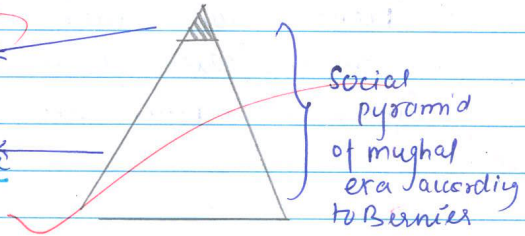 Social
pyramid
of mughal
era according
to Bernier